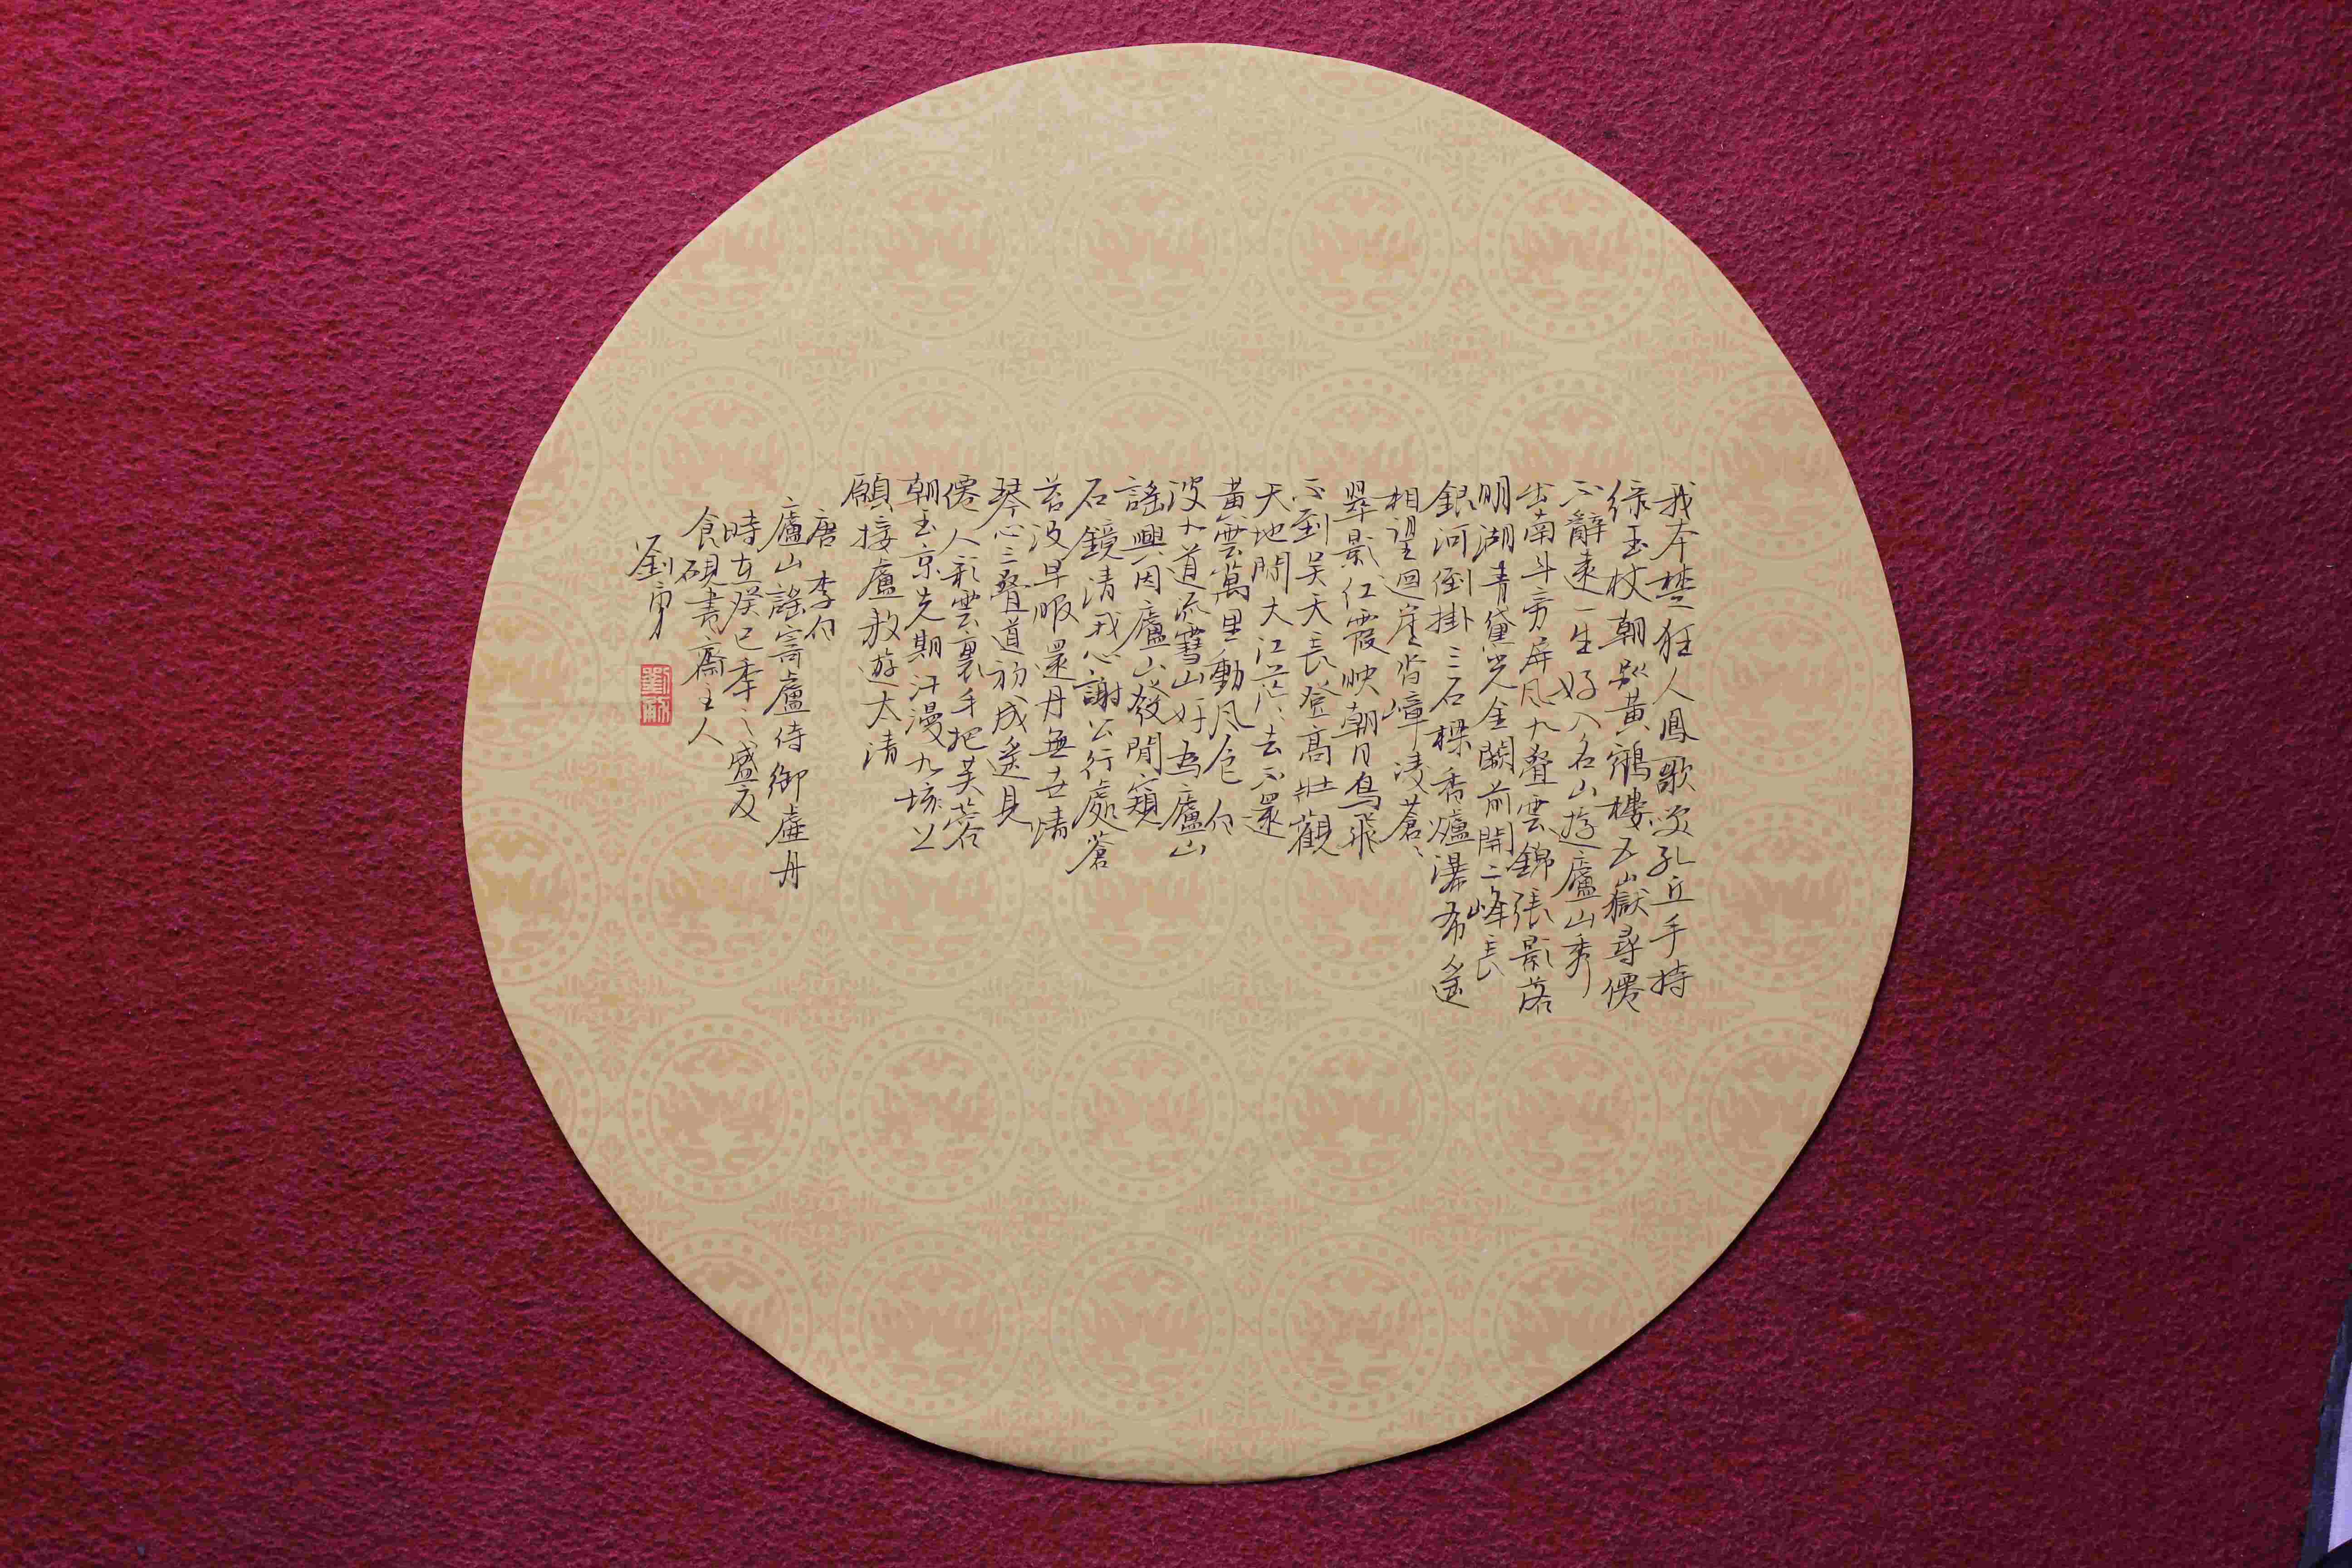 我本楚狂人鳳歌笑孔丘手持
綠玉杖朝別黃鶴樓五嶽尋僊
不辭遠一生好入名山遊廬山秀
出南斗旁屏風九疊雲錦張影落
明湖青黛光金闕前開二峰長
銀河倒掛三石樑香爐瀑布遙
相望迴崖沓嶂凌蒼〻
翠影红霞映朝日鳥飛
不到吴天長登高壯觀
天地間大江茫〻去不還
黃雲萬里動風色白
波九道流雪山好為廬山
謠興因廬山發閒窺
石鏡清我心謝公行處蒼
苔没早服還丹無世情
琴心三疊道初成遙見
僊人彩雲裏手把芙蓉
朝玉京先期汗漫九垓上
願接廬敖遊太清
唐 李白
廬山謠寄廬侍御虛舟
時在癸巳年之盛夏
食硯書齋主人
劉勇